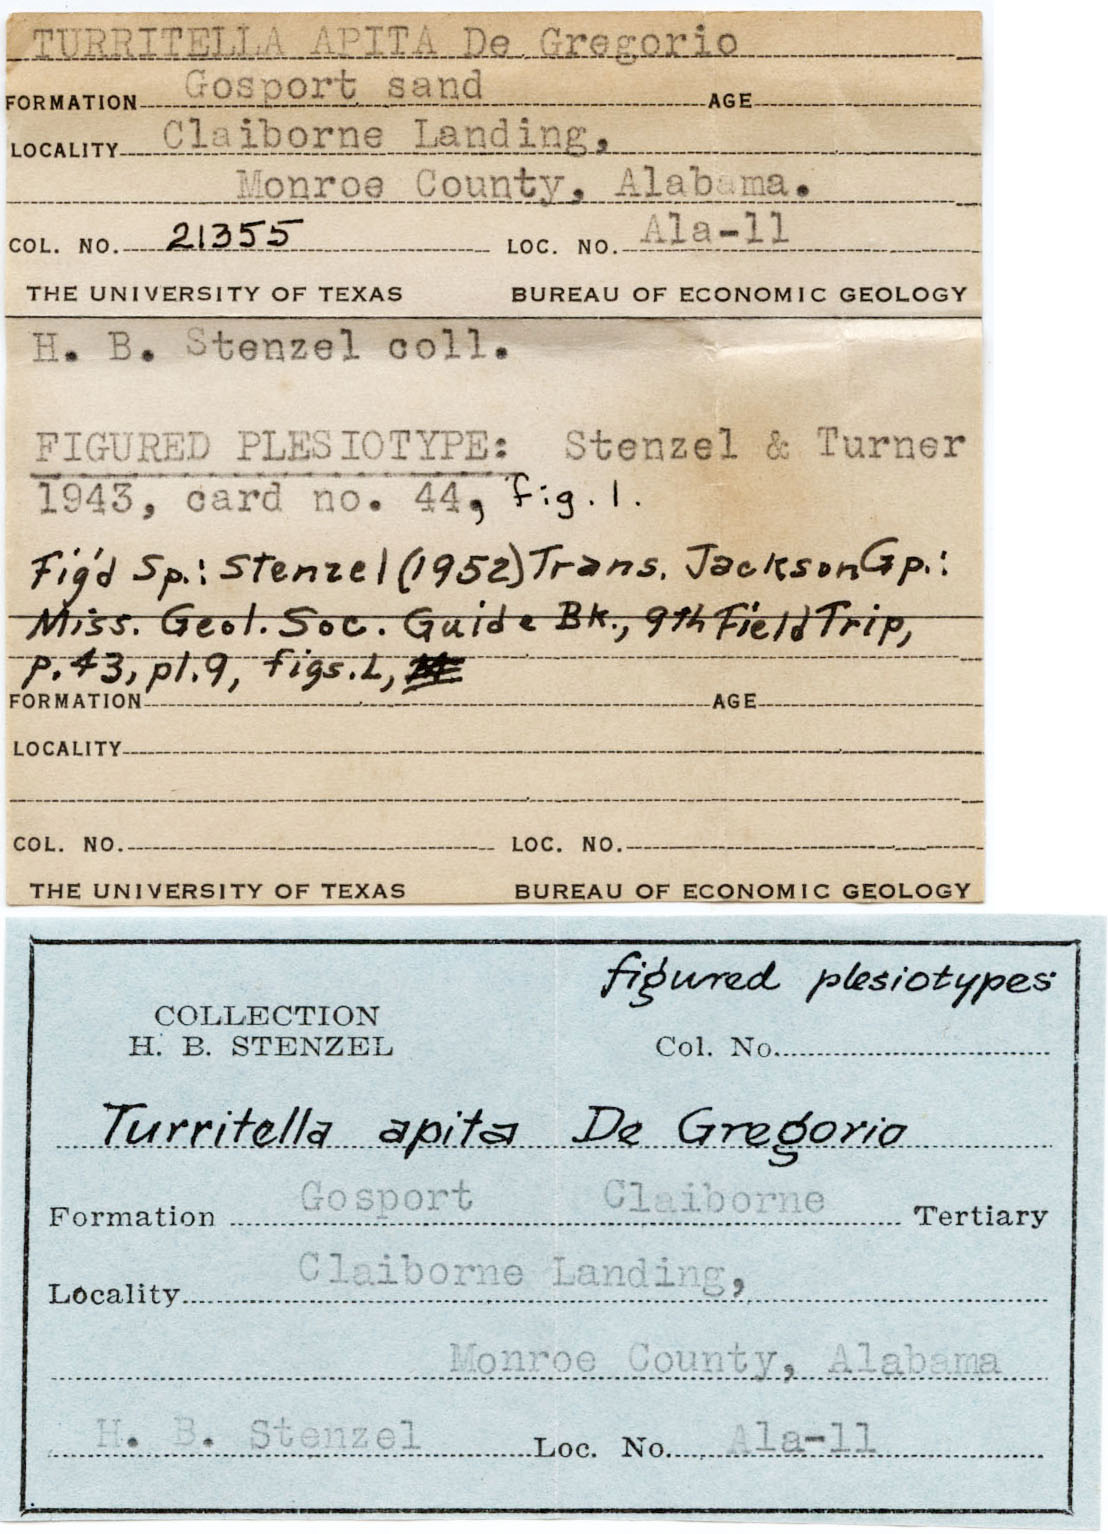 TURRITELLA APITA De Gregorio
FORMATION Gosport sand AGE
LOCALITY Claiborne Landing,
Monroe County, Alabama.
COL. NO. 21355 LOC. NO. Ala-11
THE UNIVERSITY OF TEXAS BUREAU OF ECONOMIC GEOLOGY
H. B. Stenzel coll.
FIGURED PLESIOTYPE: Stenzel & Turner
1943, card no. 44, fig. 1.
Fig'd Sp.: Stenzel (1952) Trans. Jackson Gp.:
Miss. Geol. Soc. Guide Bk., 9th Field Trip,
p. 43, pl. 9, figs. L,
FORMATION AGE
LOCALITY
COL. NO. LOC. NO.
THE UNIVERSITY OF TEXAS BUREAU OF ECONOMIC GEOLOGY
figured plesiotypes
COLLECTION
H. B. STENZEL Col. No.
Turritella apita De Gregorio
Formation Gosport Claiborne Tertiary
Locality Claiborne Landing,
Monroe County, Alabama
H. B. Stenzel Loc. No. Ala-11